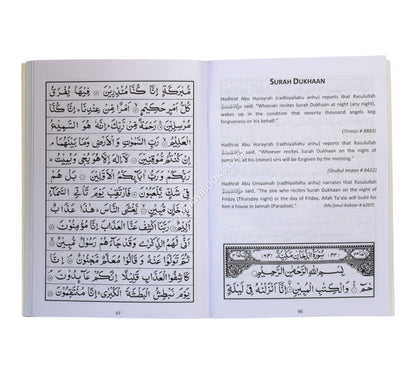 SURAH DUKHAAN
Hadhrat Abu Hurayrah (radhiyallahu anhu) reports that Rasulullah
said, "Whoever recites Surah Dukhaan at night (any night),
wakes up in the condition that seventy thousand angels beg
forgiveness on his behalf."
(Tirmizi # 8882)
Hadhrat Abu Hurayrah (radhiyallahu anhu) reports that Rasulullah
said, "Whoever recites Surah Dukhaan on the night of
Jumu'ah, all his (minor) sins will be forgiven by the morning."
(Shabul Imaan # 8422)
Hadhrat Abu Umaamah (radhiyallahu anhu) narrates that Rasulullah
said, "The one who recites Surah Dukhaan on the night of
Friday (Thursday night) or the day of Friday, Allah Ta'ala will build for
him a house in Jannah (Paradise)."
(Mu'jmul Kabeer # 6207)
سُوْرَةُ الدُّخَانِ مَكِّيَّةٌ
بِسْمِ اللّٰهِ الرَّحْمٰنِ الرَّحِيْمِ
حٰمٓ ۞ وَالْكِتٰبِ الْمُبِيْنِ ۞ اِنَّآ اَنْزَلْنٰهُ فِيْ لَيْلَةٍ
96
مُّبٰرَكَةٍ اِنَّا كُنَّا مُنْذِرِيْنَ ۞ فِيْهَا يُفْرَقُ
كُلُّ اَمْرٍ حَكِيْمٍ ۞ اَمْرًا مِّنْ عِنْدِنَا ؕ اِنَّا كُنَّا
مُرْسِلِيْنَ ۞ رَحْمَةً مِّنْ رَّبِّكَ ؕ اِنَّهٗ هُوَ السَّمِيْعُ
الْعَلِيْمُ ۞ رَبِّ السَّمٰوٰتِ وَالْاَرْضِ وَمَا بَيْنَهُمَا
اِنْ كُنْتُمْ مُّوْقِنِيْنَ ۞ لَآ اِلٰهَ اِلَّا هُوَ يُحْيٖ وَيُمِيْتُ
رَبُّكُمْ وَرَبُّ اٰبَآئِكُمُ الْاَوَّلِيْنَ ۞ بَلْ هُمْ
فِيْ شَكٍّ يَّلْعَبُوْنَ ۞ فَارْتَقِبْ يَوْمَ تَاْتِي السَّمَآءُ
بِدُخَانٍ مُّبِيْنٍ ۞ يَّغْشَى النَّاسَ ؕ هٰذَا عَذَابٌ
اَلِيْمٌ ۞ رَبَّنَا اكْشِفْ عَنَّا الْعَذَابَ اِنَّا مُؤْمِنُوْنَ ۞
اَنّٰى لَهُمُ الذِّكْرٰى وَقَدْ جَآءَهُمْ رَسُوْلٌ مُّبِيْنٌ ۞
ثُمَّ تَوَلَّوْا عَنْهُ وَقَالُوْا مُعَلَّمٌ مَّجْنُوْنٌ ۞ اِنَّا
كَاشِفُوا الْعَذَابِ قَلِيْلًا اِنَّكُمْ عَآئِدُوْنَ ۞
يَوْمَ نَبْطِشُ الْبَطْشَةَ الْكُبْرٰى ۚ اِنَّا مُنْتَقِمُوْنَ ۞
97